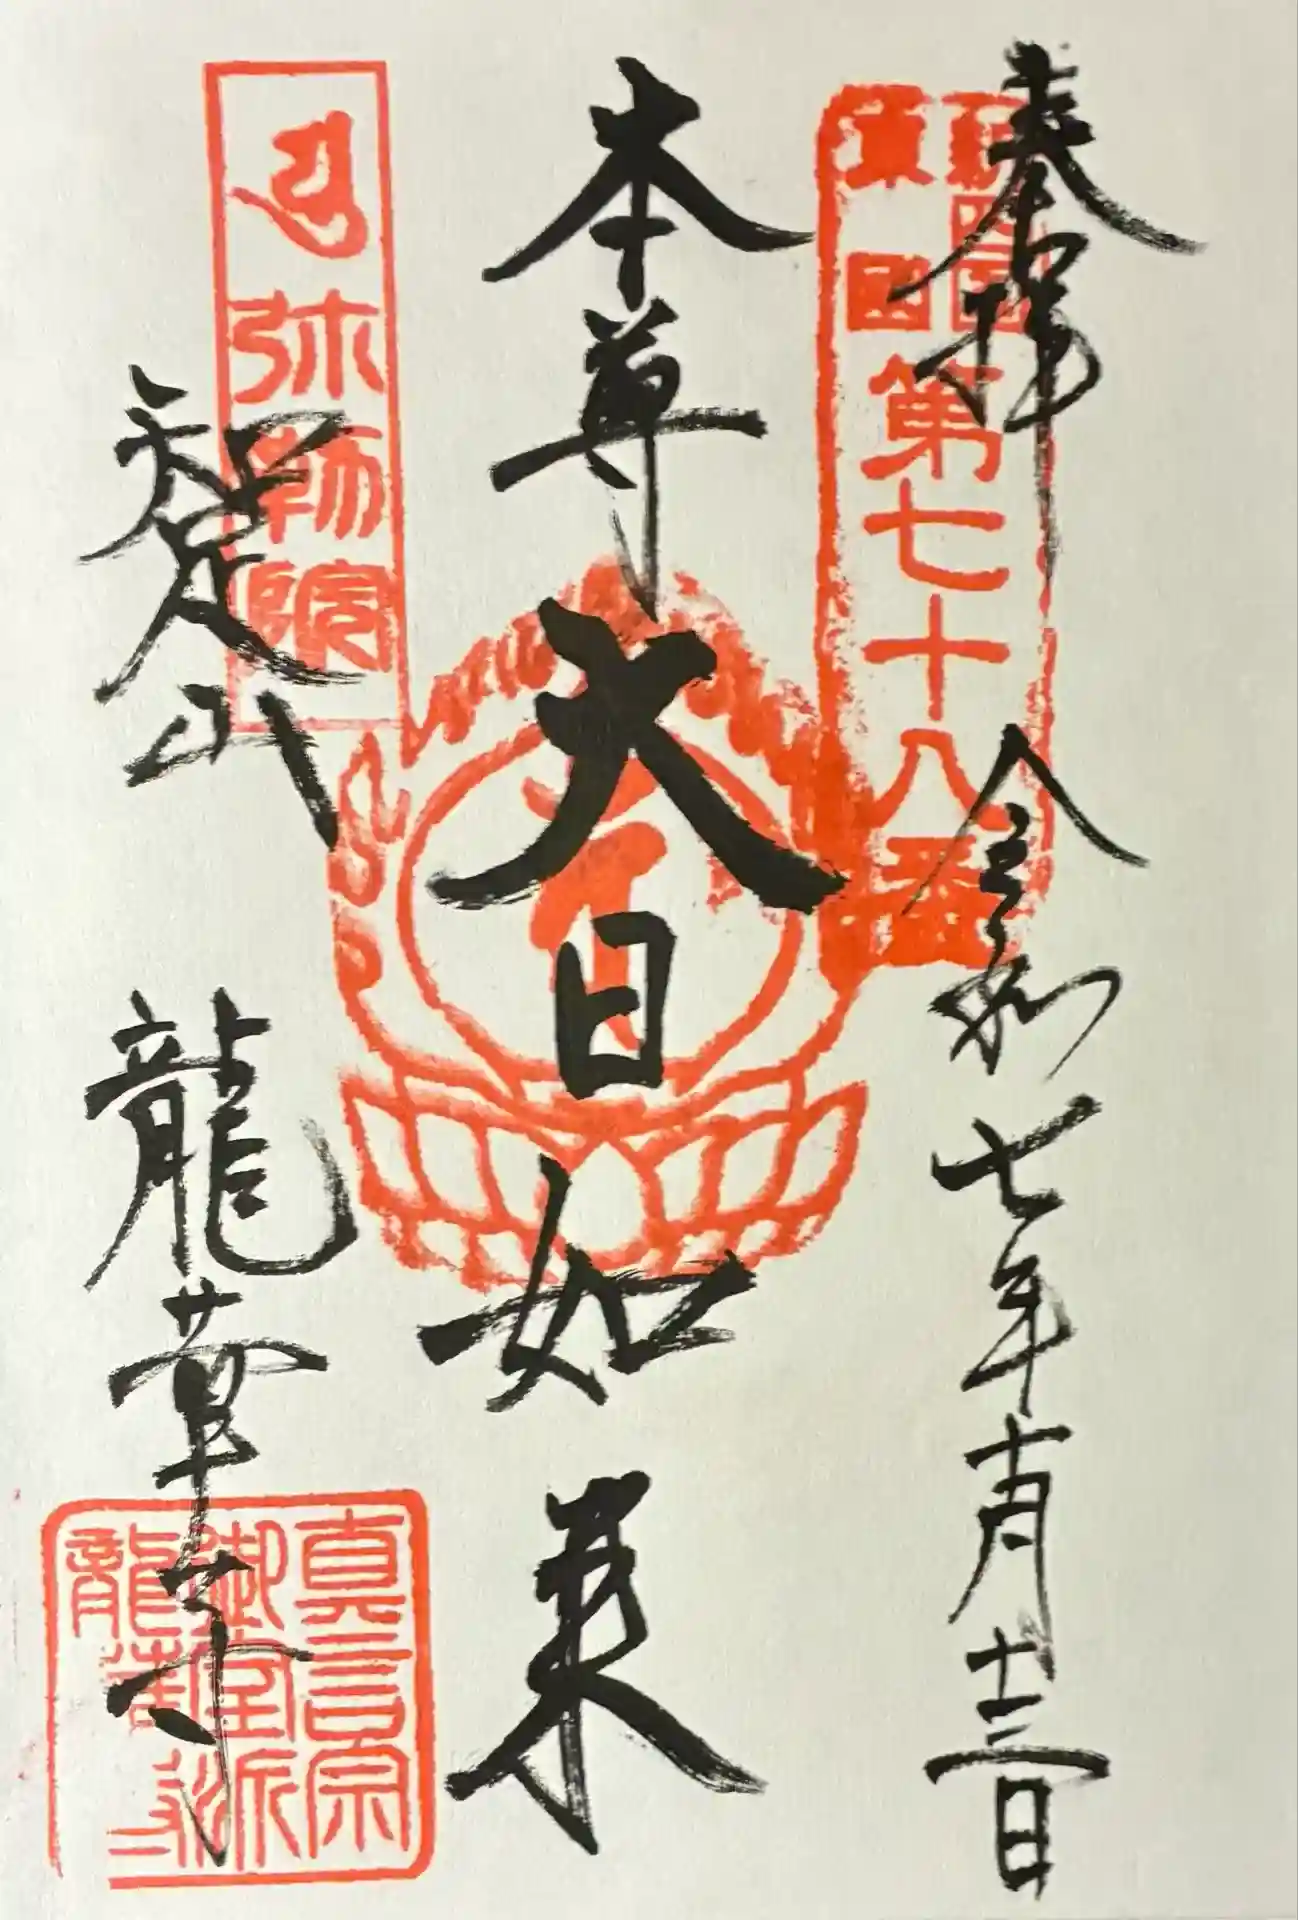 奉拝
令和七年十月十三日
第七十八番
本尊
大日如来
弥勒院
智足山
龍華寺
真言宗
御室派
龍華寺